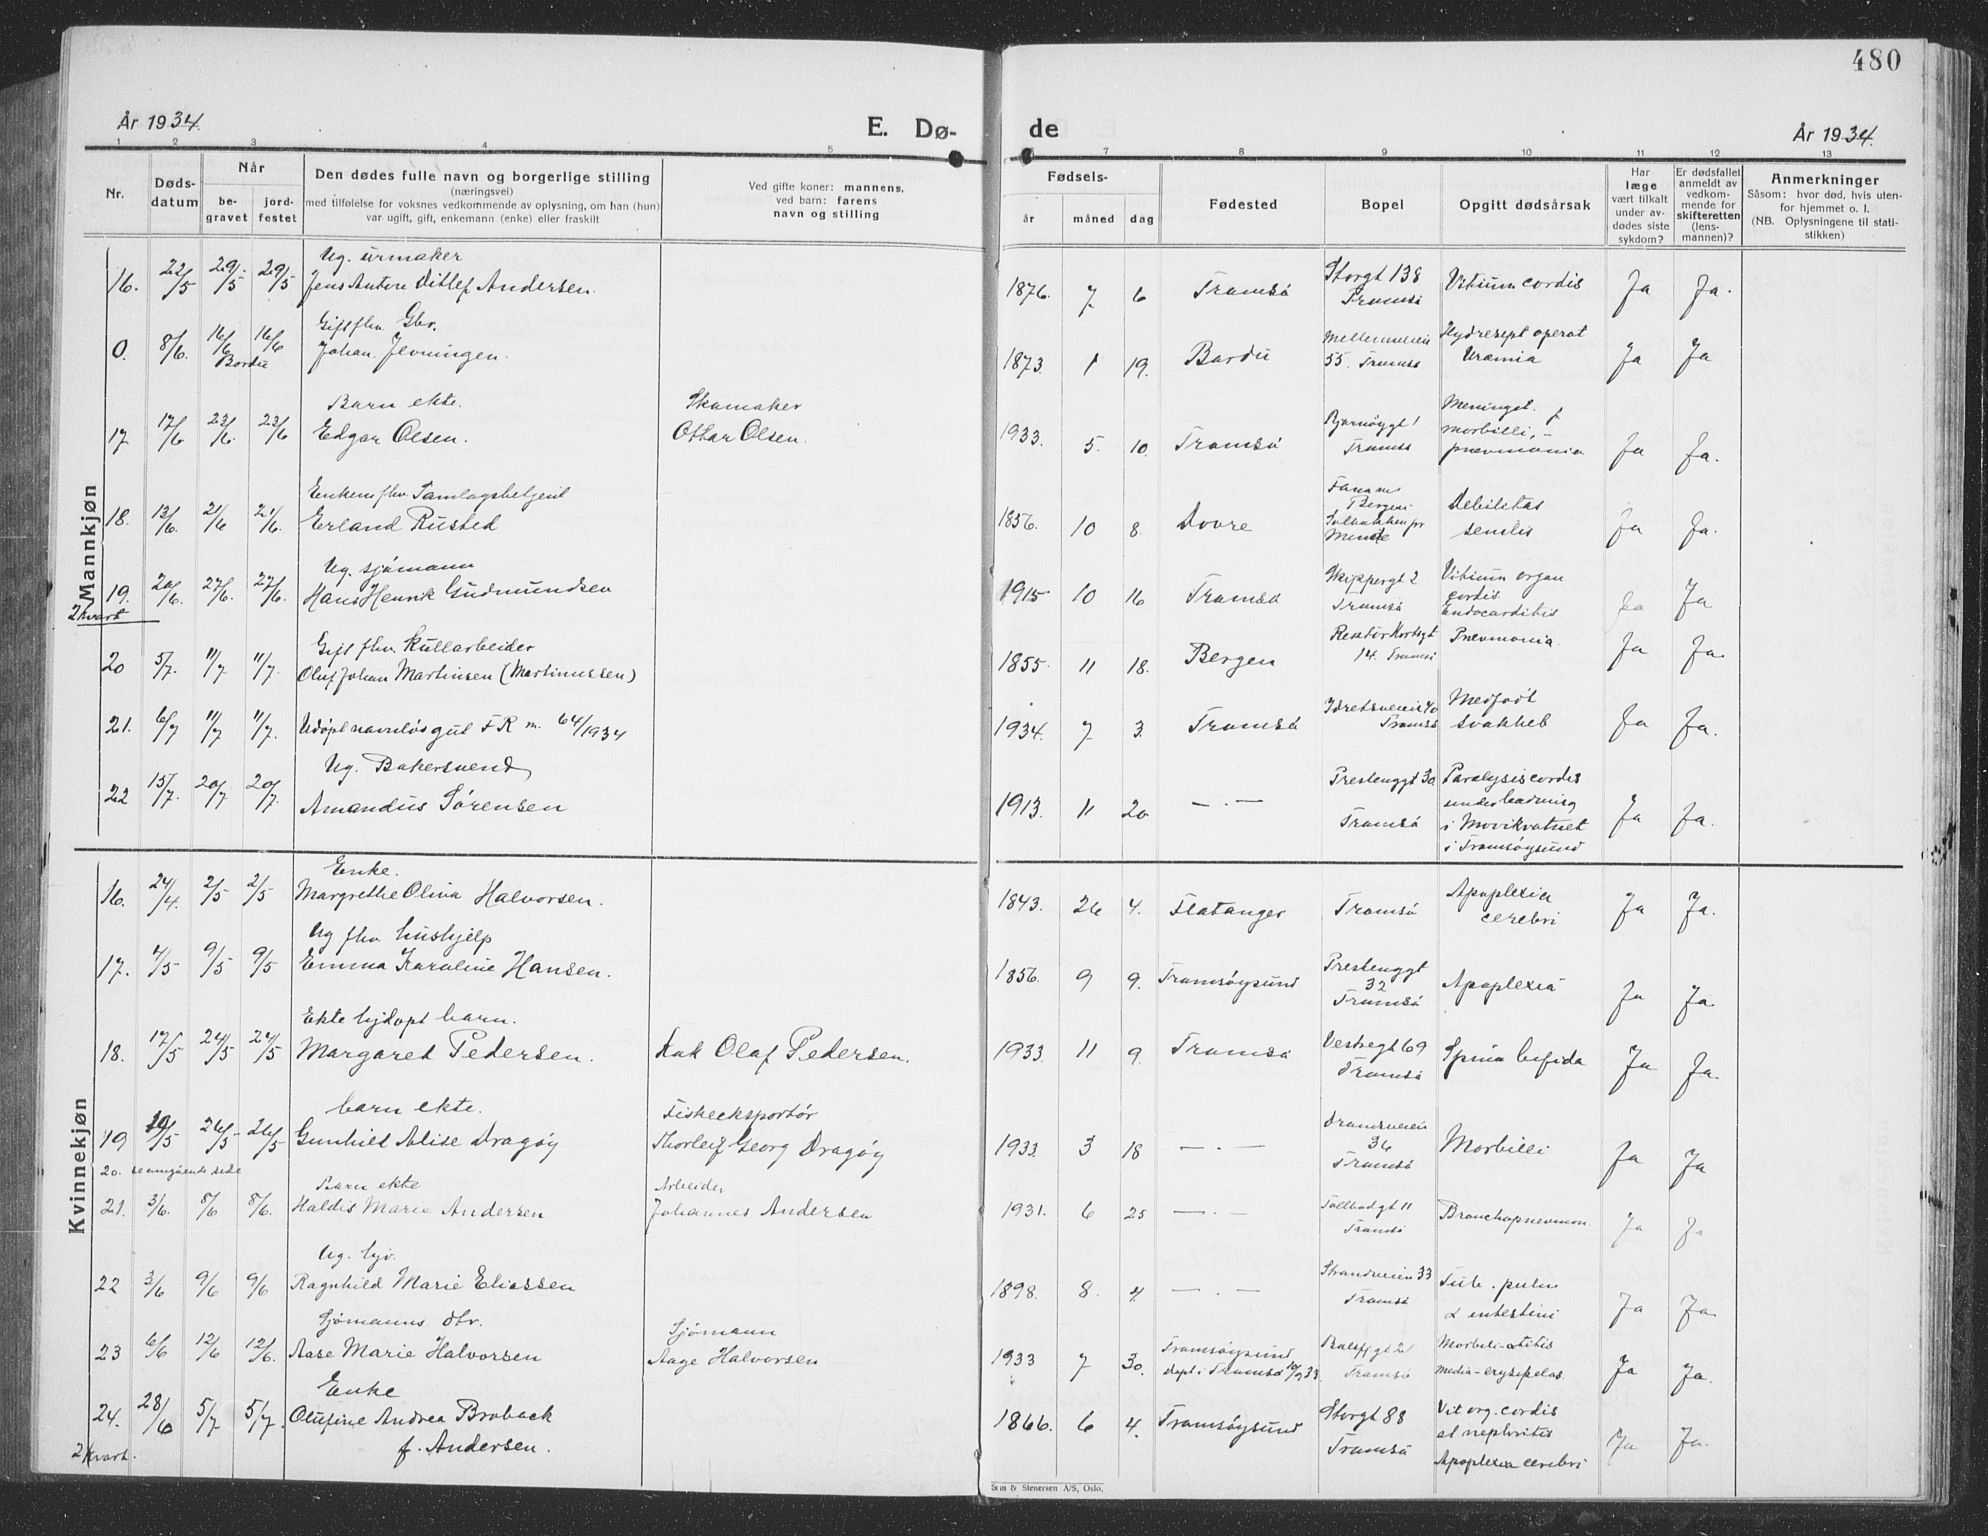 480
År 1934.
E. Dø-
de
År 1934.
1 2 3 4 5 6 7 8 9 10 11 12 13
Nr.
Døds-
datum
Når
be-
gravet
jord-
festet
Den dødes fulle navn og borgerlige stilling
(næringsvei)
med tilføielse for voksnes vedkommende av oplysning, om han (hun)
var ugift, gift, enkemann (enke) eller fraskilt
Ved gifte koner: mannens,
ved barn: farens
navn og stilling
Fødsels-
år måned dag
Fødested
Bopel
Opgitt dødsårsak
Har
læge
vært tilkalt
under av-
dødes siste
sykdom?
Er dødsfallet
anmeldt av
vedkom-
mende for
skifteretten
(lens-
mannen)?
Anmerkninger
Såsom: hvor død, hvis uten-
for hjemmet o. l.
(NB. Oplysningene til stati-
stikken)
Mannkjøn
Ug. urmaker
16. 22/5 29/5 29/5 Jens Anton Ditlef Andersen. 1876. 7 6 Tromsø Storgt 138 Tromsø Vitium cordis Ja Ja.
Gift fhv. Gbr.
0. 8/6. 16/6 16/6 Bardu Johan Jevningen. 1873. 1 19. Bardu Mellemveien 55. Tromsø operat Uræmia Ja Ja
Barn ekte. Skomaker
17 17/6 23/6. 23/6 Edgar Olsen. Ottar Olsen. 1933. 5. 10. Tromsø Bjørnøygt 1 Tromsø Meningit. morbilli, pnevmonia Ja Ja.
Enkem. fhv.
18. 13/6. 21/6 21/6. Erland Rusted 1856. 10 8. Dovre Debilitas senilis Ja Ja.
Ug. sjømann
19. 20/6. 27/6. 27/6. Hans Henrik Gudmundsen 1915 10 16 Tromsø Skippergt 2 Tromsø Vitium organ cordis Endocarditis Ja Ja
2 kvart
Gift fhv. kullarbeider
20 5/7. 11/7 11/7. Oluf Johan Martinsen (Martinussen) 1855. 11 18. Bergen Rektor Hortsgt 14. Tromsø Pnevmonia. Ja Ja.
21. 6/7 11/7 11/7. Udøpt navnløs gut F R m. 64/1934 1934. 7 3. Tromsø Tromsø Medfødt svakheb Ja Ja.
Ug. Bakersvend
22 15/7. 20/7 20/7. Amandus Sørensen 1913. 11 20 — . — Prestenggt 30 Tromsø Paralysis cordis under badning i Movikvatnet i Tromsøysund Ja Ja.
Kvinnekjøn
Enke.
16. 24/4. 2/5 2/5 Margrethe Olina Halvorsen. 1843. 26 4. Flatanger Tromsø Apoplexia cerebri Ja Ja.
Ug fhv. hushjelp
17. 4/5 9/5 9/5 Emma Karoline Hansen. 1856. 9 9. Tromsøysund Prestenggt 32 Tromsø Apoplexia Ja Ja
Ekte hjdøpt barn.
18. 17/5 24/5 24/5 Margaret Pedersen. Olaf Pedersen. 1933. 11 9. Tromsø Vestregt 69 Tromsø Spina bifida Ja Ja.
barn ekte. Fiskeeksportør
19 /5 26/5 26/5 Gunhild Alise Dragøy Thorleif Georg Dragøy 1933. 3 18 — . — 36 Tromsø Morbilli Ja Ja
20. se omgående side
Barn ekte Arbeider
21. 3/6. 8/6 8/6. Haldis Marie Andersen Johannes Andersen 1931. 6 25 — . — Tollbodgt 11 Tromsø Bronchopnevmon Ja Ja
Ug. hjv.
22 3/6 9/6 9/6 Ragnhild Marie Eliassen 1898. 8. 4. — . — Strandveien 33 Tromsø Tub. pulm & intestini Ja Ja.
Sjømanns dtr. Sjømann
23 6/6 12/6 12/6. Aase Marie Halvorsen Aage Halvorsen 1933 7 30. Tromsøysund døpt i Tromsø 10/9 33. Balsfjgt 21 Tromsø Morbili-otitis media-erysipelas. Ja Ja.
Enke
24. 28/6 5/7 5/7. Olufine Andrea Broback f. Andersen. 1866. 6 4. Tromsøysund Storgt 88 Tromsø Vit org. cordis et nephritis Apoplexia cerebri Ja Ja.
2 kvart.
Sem & Stenersen A/S, Oslo.